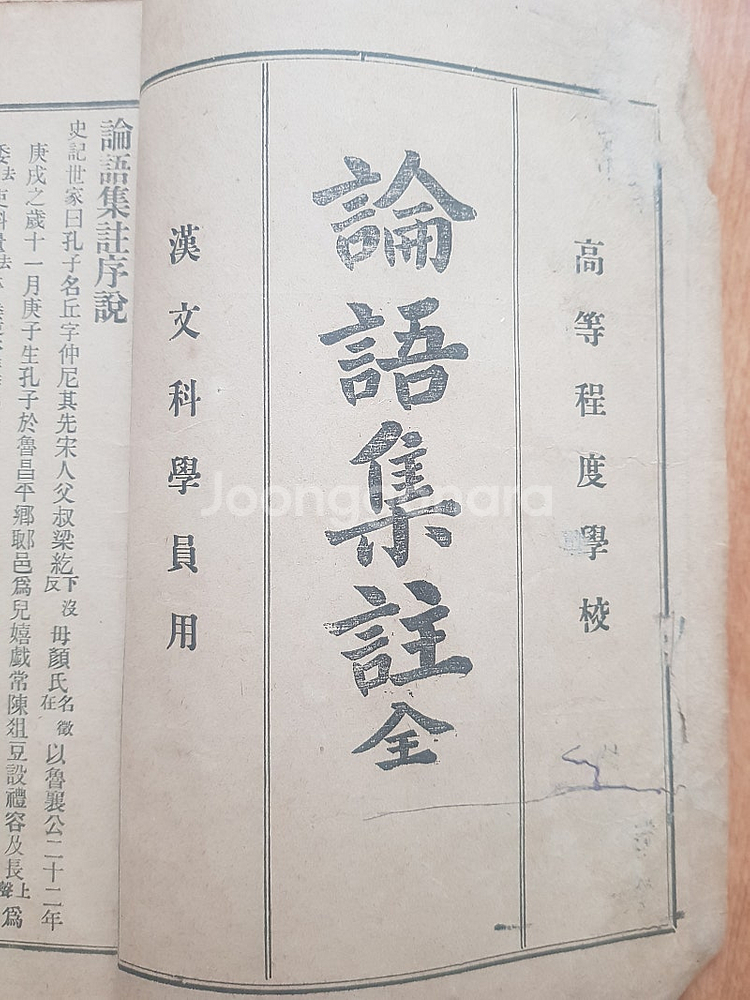 高等程度學校
論語集註全
漢文科學員用
論語集註序說
史記世家曰孔子名丘字仲尼其先宋人父叔梁紇下沒反母顏氏名徵在以魯襄公二十二年
庚戌之歲十一月庚子生孔子於魯昌平鄉郰邑爲兒嬉戲常陳俎豆設禮容及長上聲爲
Joonggonara